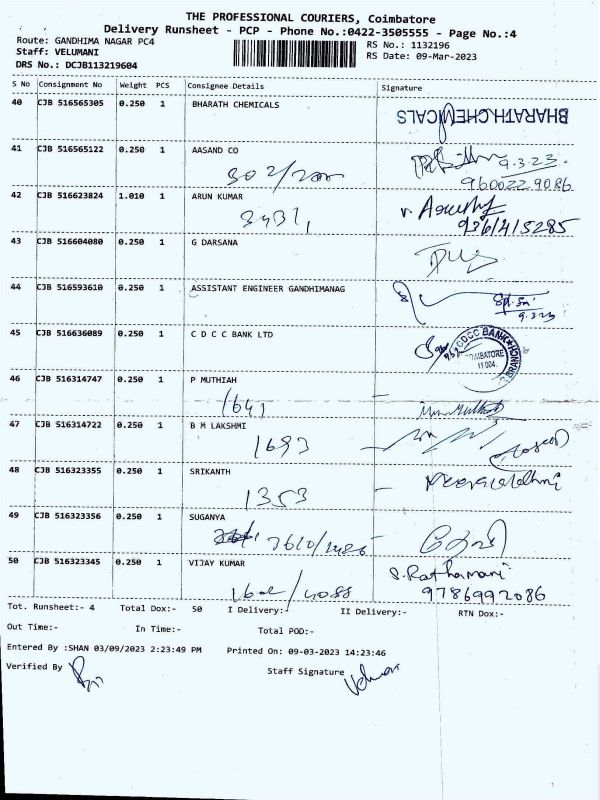 THE PROFESSIONAL COURIERS, Coimbatore
Delivery Runsheet - PCP - Phone No.:0422-3505555 - Page No.:4
Route: GANDHIMA NAGAR PC4
RS No.: 1132196
Staff: VELUMANI
RS Date: 09-Mar-2023
DRS No.: DCJB113219604
S No Consignment No Weight PCS Consignee Details Signature
40 CJB 516565305 0.250 1 BHARATH CHEMICALS
BHARATH CHEMICALS
41 CJB 516565122 0.250 1 AASAND CO
302/200 9.3.23
9600229086
42 CJB 516623824 1.010 1 ARUN KUMAR
3431,
43 CJB 516604080 0.250 1 G DARSANA
44 CJB 516593610 0.250 1 ASSISTANT ENGINEER GANDHIMANAG
9.3.23
45 CJB 516636089 0.250 1 C D C C BANK LTD
CDCC BANK
46 CJB 516314747 0.250 1 P MUTHIAH
1641
47 CJB 516314722 0.250 1 B M LAKSHMI
1693
48 CJB 516323355 0.250 1 SRIKANTH
1353
49 CJB 516323356 0.250 1 SUGANYA
50 CJB 516323345 0.250 1 VIJAY KUMAR
S. Rathamani
9786992086
Tot. Runsheet:- 4 Total Dox:- 50 I Delivery:- II Delivery:- RTN Dox:-
Out Time:- In Time:- Total POD:-
Entered By :SHAN 03/09/2023 2:23:49 PM Printed On: 09-03-2023 14:23:46
Verified By Staff Signature